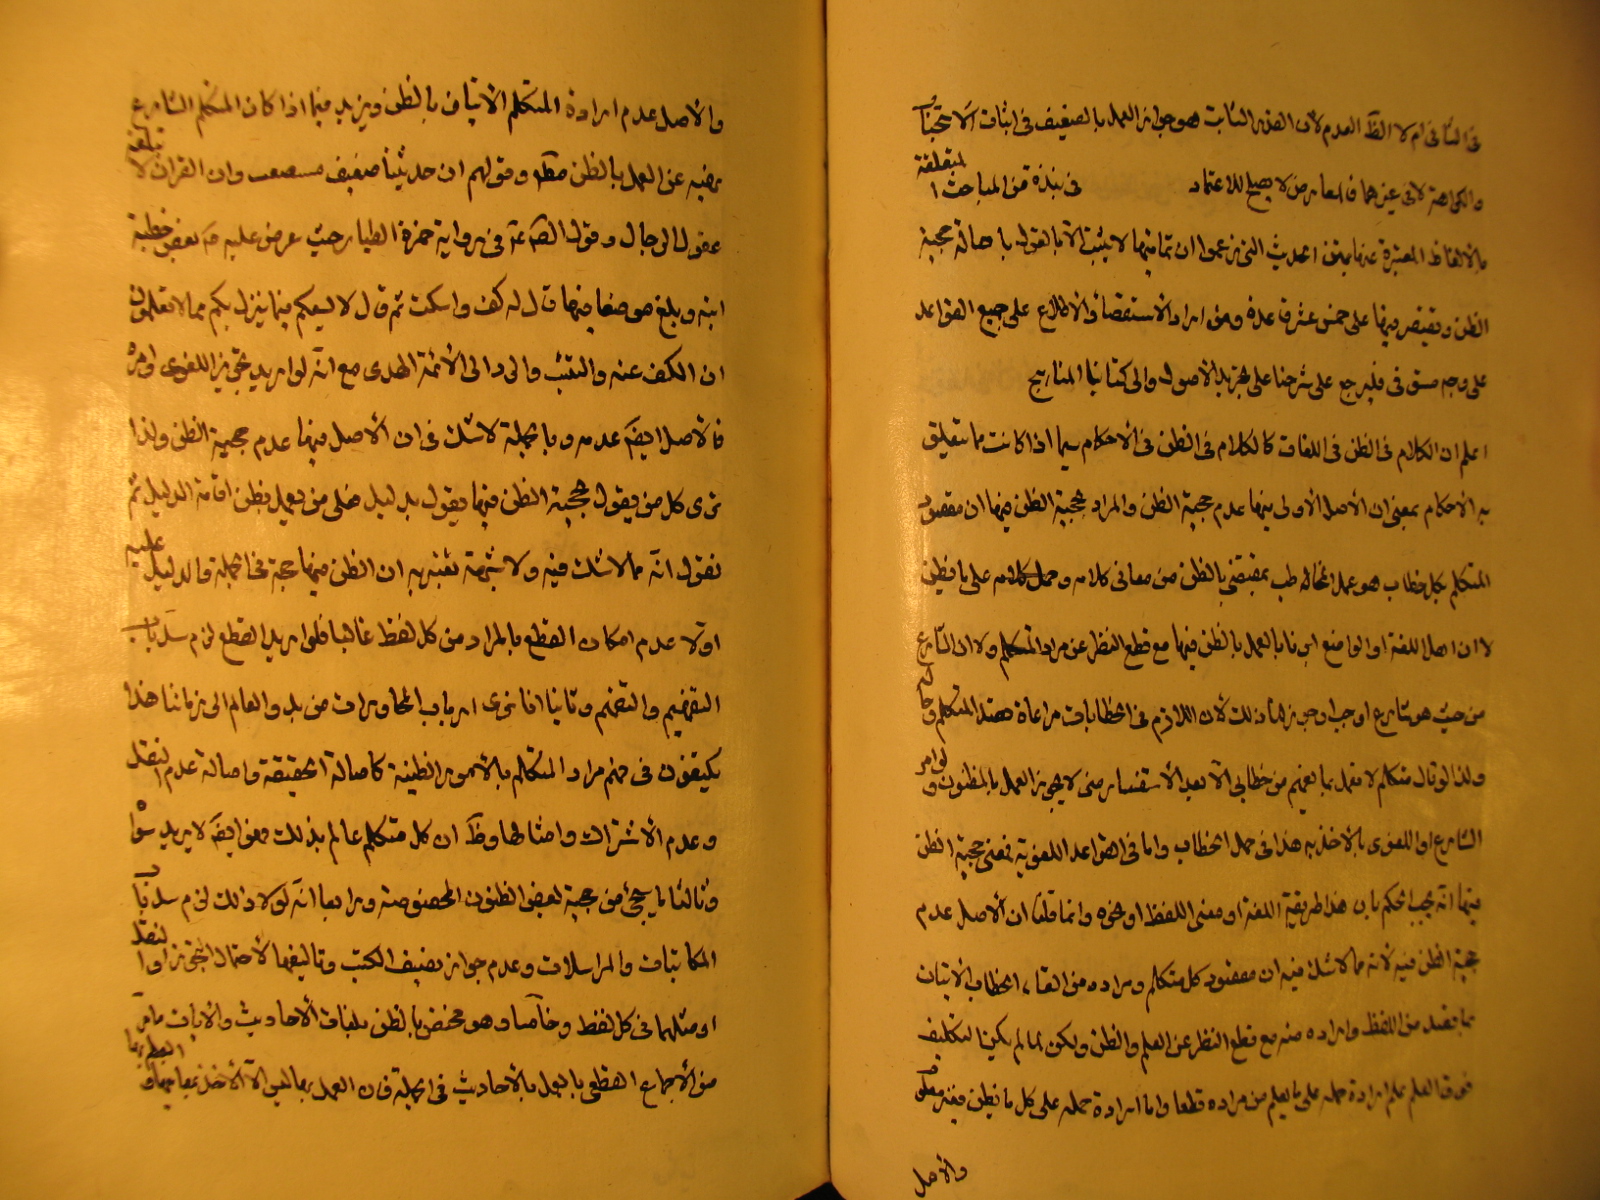 فى الثانى ام لا الظ العدم لان القدر الثابت هو جواز العمل بالضعيف فى اثبات الاستحباب
والكراهة لا فى غيرهما فالمعارض لا يصلح للاعتماد فى نبذة من المباحث المتعلقة
بالالفاظ المعتبرة عنها الحديث التى زعموا ان تماميتها لا يثبت الا بالقول باصالة حجية
الظن ونقتصر فيها على خمس عشر قاعدة ومن اراد الاستقصاء والاطلاع على جميع القواعد
على وجه مستوفى فليرجع على شرحنا على تجريد الاصول والى كتابنا المناهج
اعلم ان الكلام فى الظن فى اللغات كالكلام فى الظن فى الاحكام سيما اذا كانت مما يتعلق
به الاحكام بمعنى ان الاصل الاولى فيها عدم حجية الظن والمراد بحجية الظن فيها ان مقصود
المتكلم بكل خطاب هو عمل المخاطب بمقتضى بالظن من معانى كلامه وحمل كلامه على ما يظن
لا ان اهل اللغة او الواضع امرنا بالعمل بالظن فيها مع قطع النظر عن مراد المتكلم ولا ان الشارع
من حيث هو شارع اوجب او جوز لنا ذلك لان اللازم فى الخطابات مراعاة قصد المتكلم
ولذا لو قال متكلم لا تعمل بما تفهم من خطابى الا بعد الاستفسار منى لا يجوز العمل بالمظنون ولو امر
الشارع او اللغوى بالاخذ به هذا فى حمل الخطاب واما فى القواعد اللغوية فمعنى حجية الظن
فيها انه يجب الحكم بان هذا طريقة اللغة او معنى اللفظ او نحوه وانما قلنا ان الاصل عدم
حجية الظن فيه لانه مما لا شك فيه ان مقصود كل متكلم ومراده من القاء الخطاب الاتيان
بما قصد من اللفظ واراده منه مع قطع النظر عن العلم والظن ولكن لما لم يكن التكليف
فوق العلم علم ارادة حمله على ما يعلم من مراده قطعا واما ارادة حمله على كل ما يظن فغير معلوم
والاصل
والاصل عدم ارادة المتكلم الاتيان بالظن ويزيد فيما اذا كان المتكلم الشارع
نهيه عن العمل بالظن مط وقولهم ان حديثنا صعب مستصعب وان القران لا تبلغه
عقول الرجال وقول الصم ع فى رواية حمزة الطيار حيث عرض عليه بعض خطبة
ابيه وبلغ موضعا فيها قال له كف واسكت ثم قال لا يسعكم فيما ينزل بكم مما لا تعلمون
ان الكف عنه والتثبت والرد الى الائمة الهدى مع انه لو اريد تجويز اللغوى او امره
فالاصل ايضا عدمه وبالجملة لا شك فى ان الاصل فيها عدم حجية الظن ولذا
ترى كل من يقول بحجية الظن فيها يقول بدليل فعلى من يعمل بظن اقامة الدليل عليه ثم
نقول انه مما لا شك فيه ولا شبهة تعتريه ان الظن فيها حجة فى الجملة والدليل
اولا عدم امكان القطع بالمراد من كل لفظ غالبا فلو اريد القطع لزم سد باب
التفهيم والتفهم وثانيا انا نرى ارباب المحاورات من بدو العالم الى زماننا هذا
يكتفون فى فهم مراد المتكلم بالامور الظنية كاصالة الحقيقة واصالة عدم النقل
وعدم الاشتراك وامثالها وظ ان كل متكلم عالم بذلك فهو ايضا لا يريد سواه
وثالثا ما يجئ من حجية بعض الظنون المخصوصة ورابعا انه لولا ذلك لزم سد باب
المكاتبات والمراسلات وعدم جواز تصنيف الكتب وتاليفها لاحتمال التجوز او النقل
او مثلهما فى كل لفظ وخامسا وهو مختص بالظن بلغات الاحاديث والايات ما مر
من الاجماع القطعى بالعمل بالاحاديث فى الجملة فان العمل بها ليس الا الاخذ بمعانيها